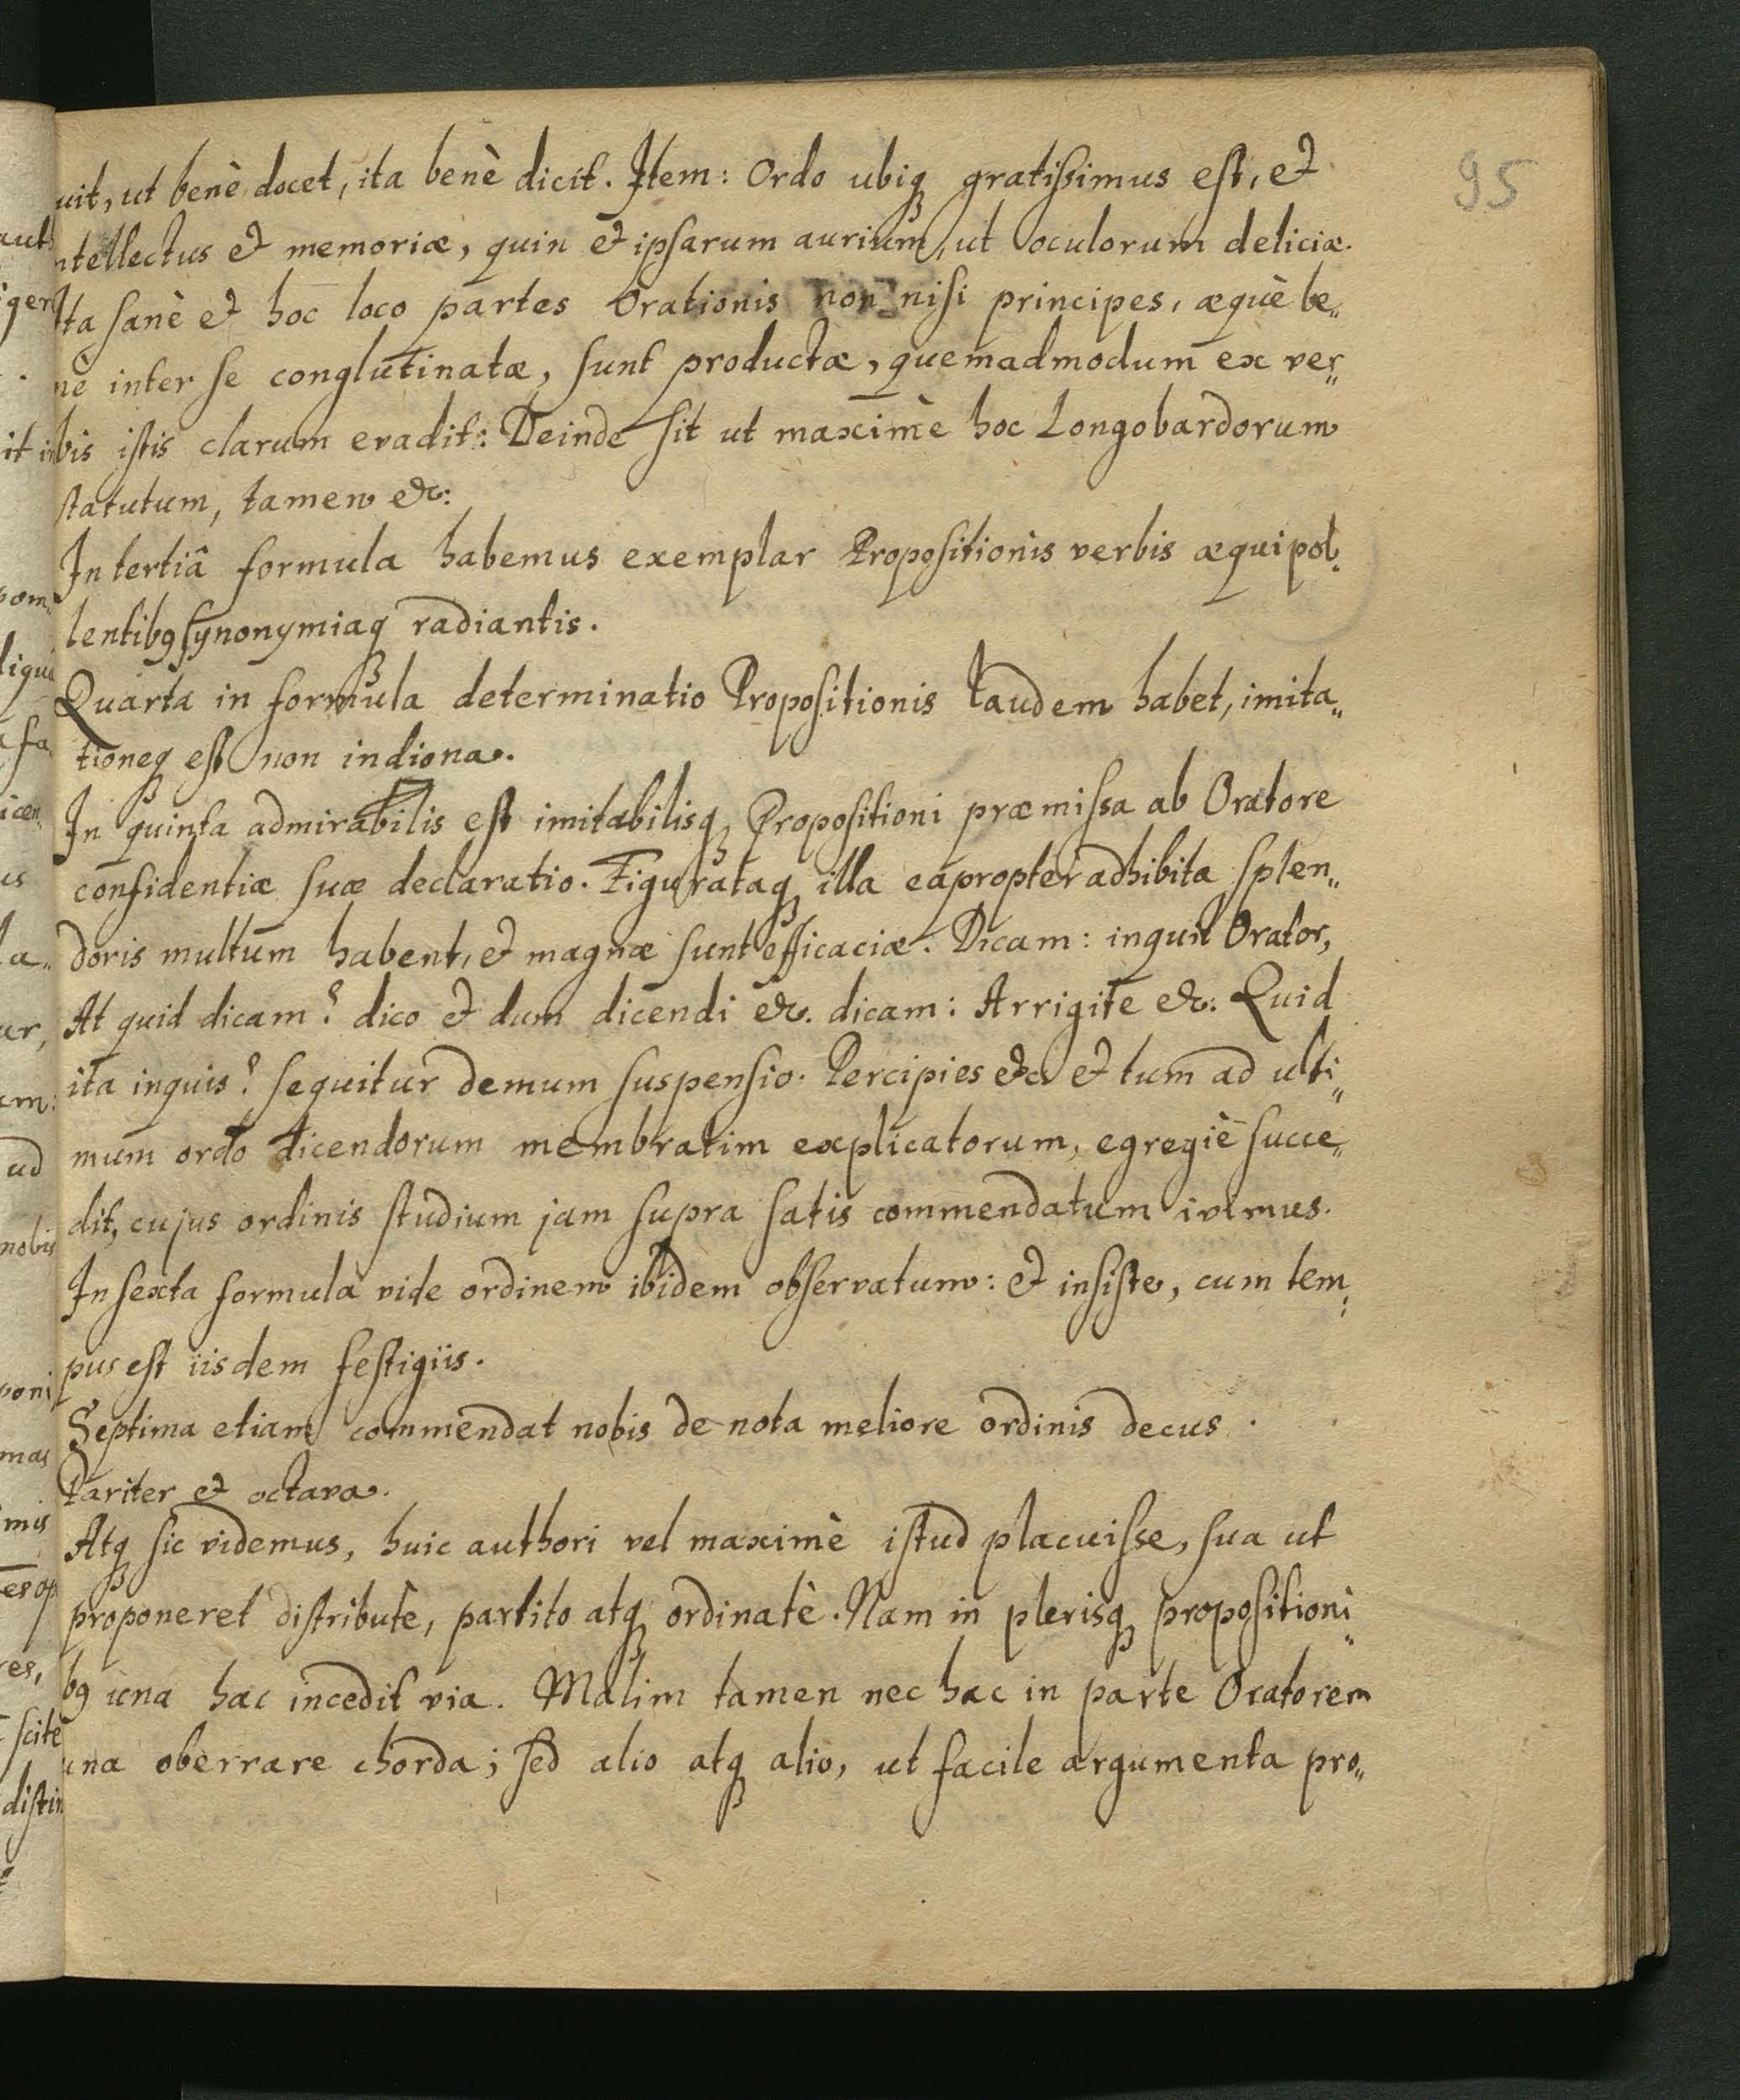 95
uit, ut benè docet, ita benè dicit. Item: Ordo ubiq; gratissimus est, et
ntellectus et memoriæ, quin et ipsarum aurium, ut oculorum deliciæ.
Ita sanè et hoc loco partes Orationis non nisi principes, æquè be„
nè inter se conglutinatæ, sunt productæ, quemadmodum ex ver„
bis istis clarum evadit: Deinde sit ut maximè hoc Longobardorum
statutum, tamen &c:
In tertiâ formula habemus exemplar Propositionis verbis æquipol„
lentibꝰ synonymiaq; radiantis.
Quarta in formula determinatio Propositionis laudem habet, imita„
tioneq; est non indigna.
In quinta admirabilis est imitabilisq; Propositioni præmissa ab Oratore
confidentiæ suæ declaratio. Figurataq; illa eapropter adhibita splen„
doris multum habent, et magnæ sunt efficaciæ. Dicam: inquit Orator,
At quid dicam? dico et dum dicendi &c. dicam: Arrigite &c. Quid
ita inquis? sequitur demum suspensio. Percipies etc et tum ad ulti„
mum ordo dicendorum membratim explicatorum, egregiè succe„
dit, cujus ordinis studium jam supra satis commendatum ivimus.
In sexta formula vide ordinem ibidem observatum: et insiste, cum tem„
pus est iisdem festigiis.
Septima etiam commendat nobis de nota meliore ordinis decus.
Pariter et octava.
Atq; sic videmus, huic authori vel maximè istud placuisse, sua ut
proponeret distributè, partito atq; ordinatè. Nam in plerisq; propositioni„
bꝰ una hac incedit via. Malim tamen nec hac in parte Oratorem
una oberrare chorda; sed alio atq; alio, ut facile argumenta pro„